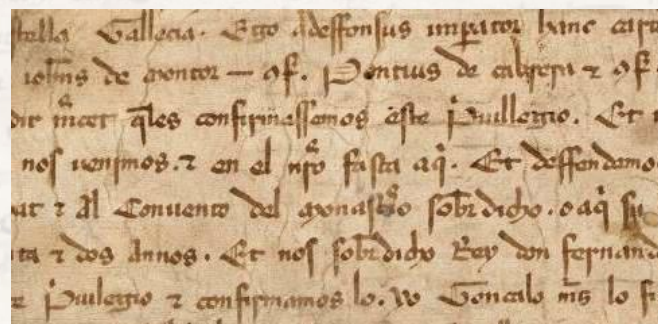 stella Gallecia. Ego Adeffonsus imperator hanc carta
iohns de montor — cf. Pontius de cabrera ⁊ cf.
dit mcet qles confirmassemos este Priuillegio. Et
nos uenimos. ⁊ en el nro fasta aq̃. Et deffendemo
at ⁊ Al Conuento del monastͦio sobrdicho. o aq̃ su
ta ⁊ dos Annos. Et nos sobrdicho Rey don fernand
e Priuilegio ⁊ confirmamos lo. yo Goncalo ms lo fi